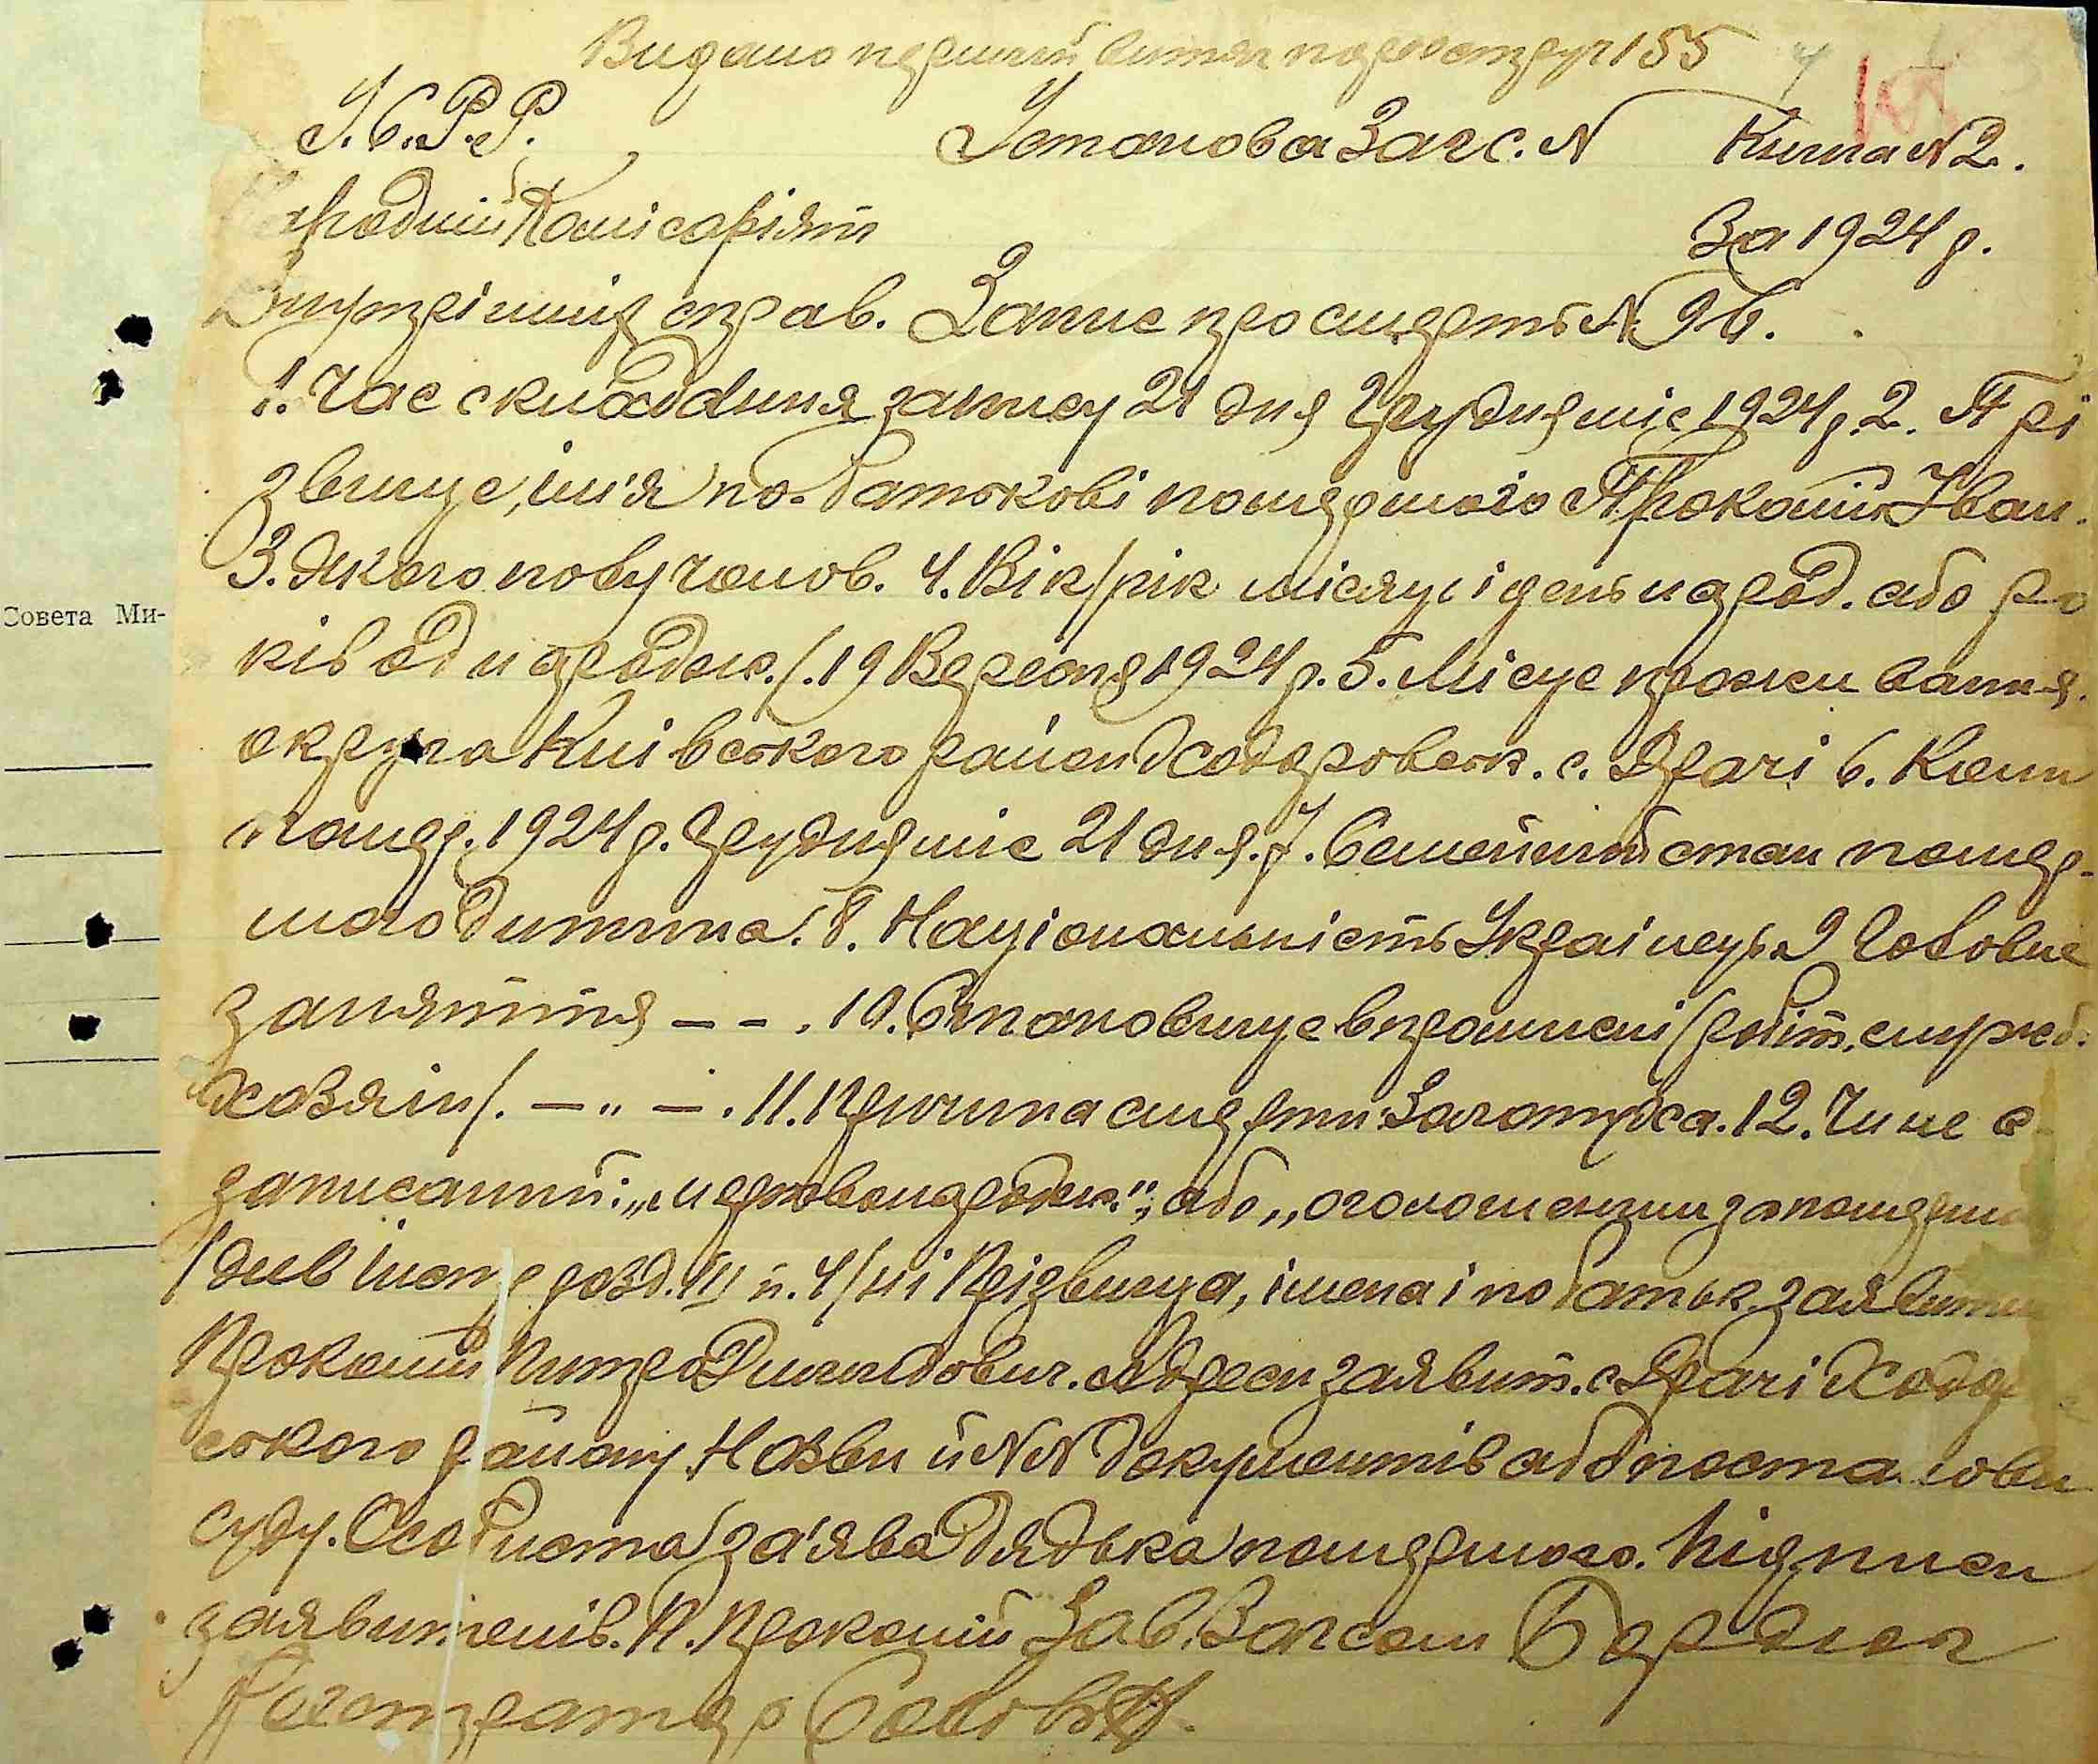 Видано перший витяг по реестру 155
У.С.Р.Р. Установа Загс. N Книга N 2.
Народний Комісаріят За 1924 р.
Внутрішніх справ. Запис про смерть N 96.
1. Час складання запису 21 дня Грудня міс 1924 р. 2. Прі
звище, им'я по-батькові помершого Прокопій Іван.
3. Якого полу Чолов. 4. Вік/рік місяць і день народ. або ро
ків од народж./. 19 Вересня 1924 р. 5. Місце прожи вання.
округа Киівського район Ходоровськ. с. Ядгачі 6. Коли
помер. 1924 р. Грудня міс 21 дня. 7. Семейний стан помер-
шого дитина. 8. Національність Украінець 9 Головне
заняття – – . 10. Становище в промислі /робіт. служб.
хозяін/. – „ – . 11. Причина смерти: 12. Чи не є
записаний: „мертвонародж.", або „оголошеним за померш
/див інстр розд. III п. 4/ ні Прізвища, імена і по баткьк. заявите
Прокопій Питро Диомидович. Адреси заявит. с. Ядгачі Ходор
ського району. Назви й NN документів або постанови
суду. Особиста за'ява дядька помершого. Підписи
заявителів. П. Прокопій Зав. Загсом
Регистратор